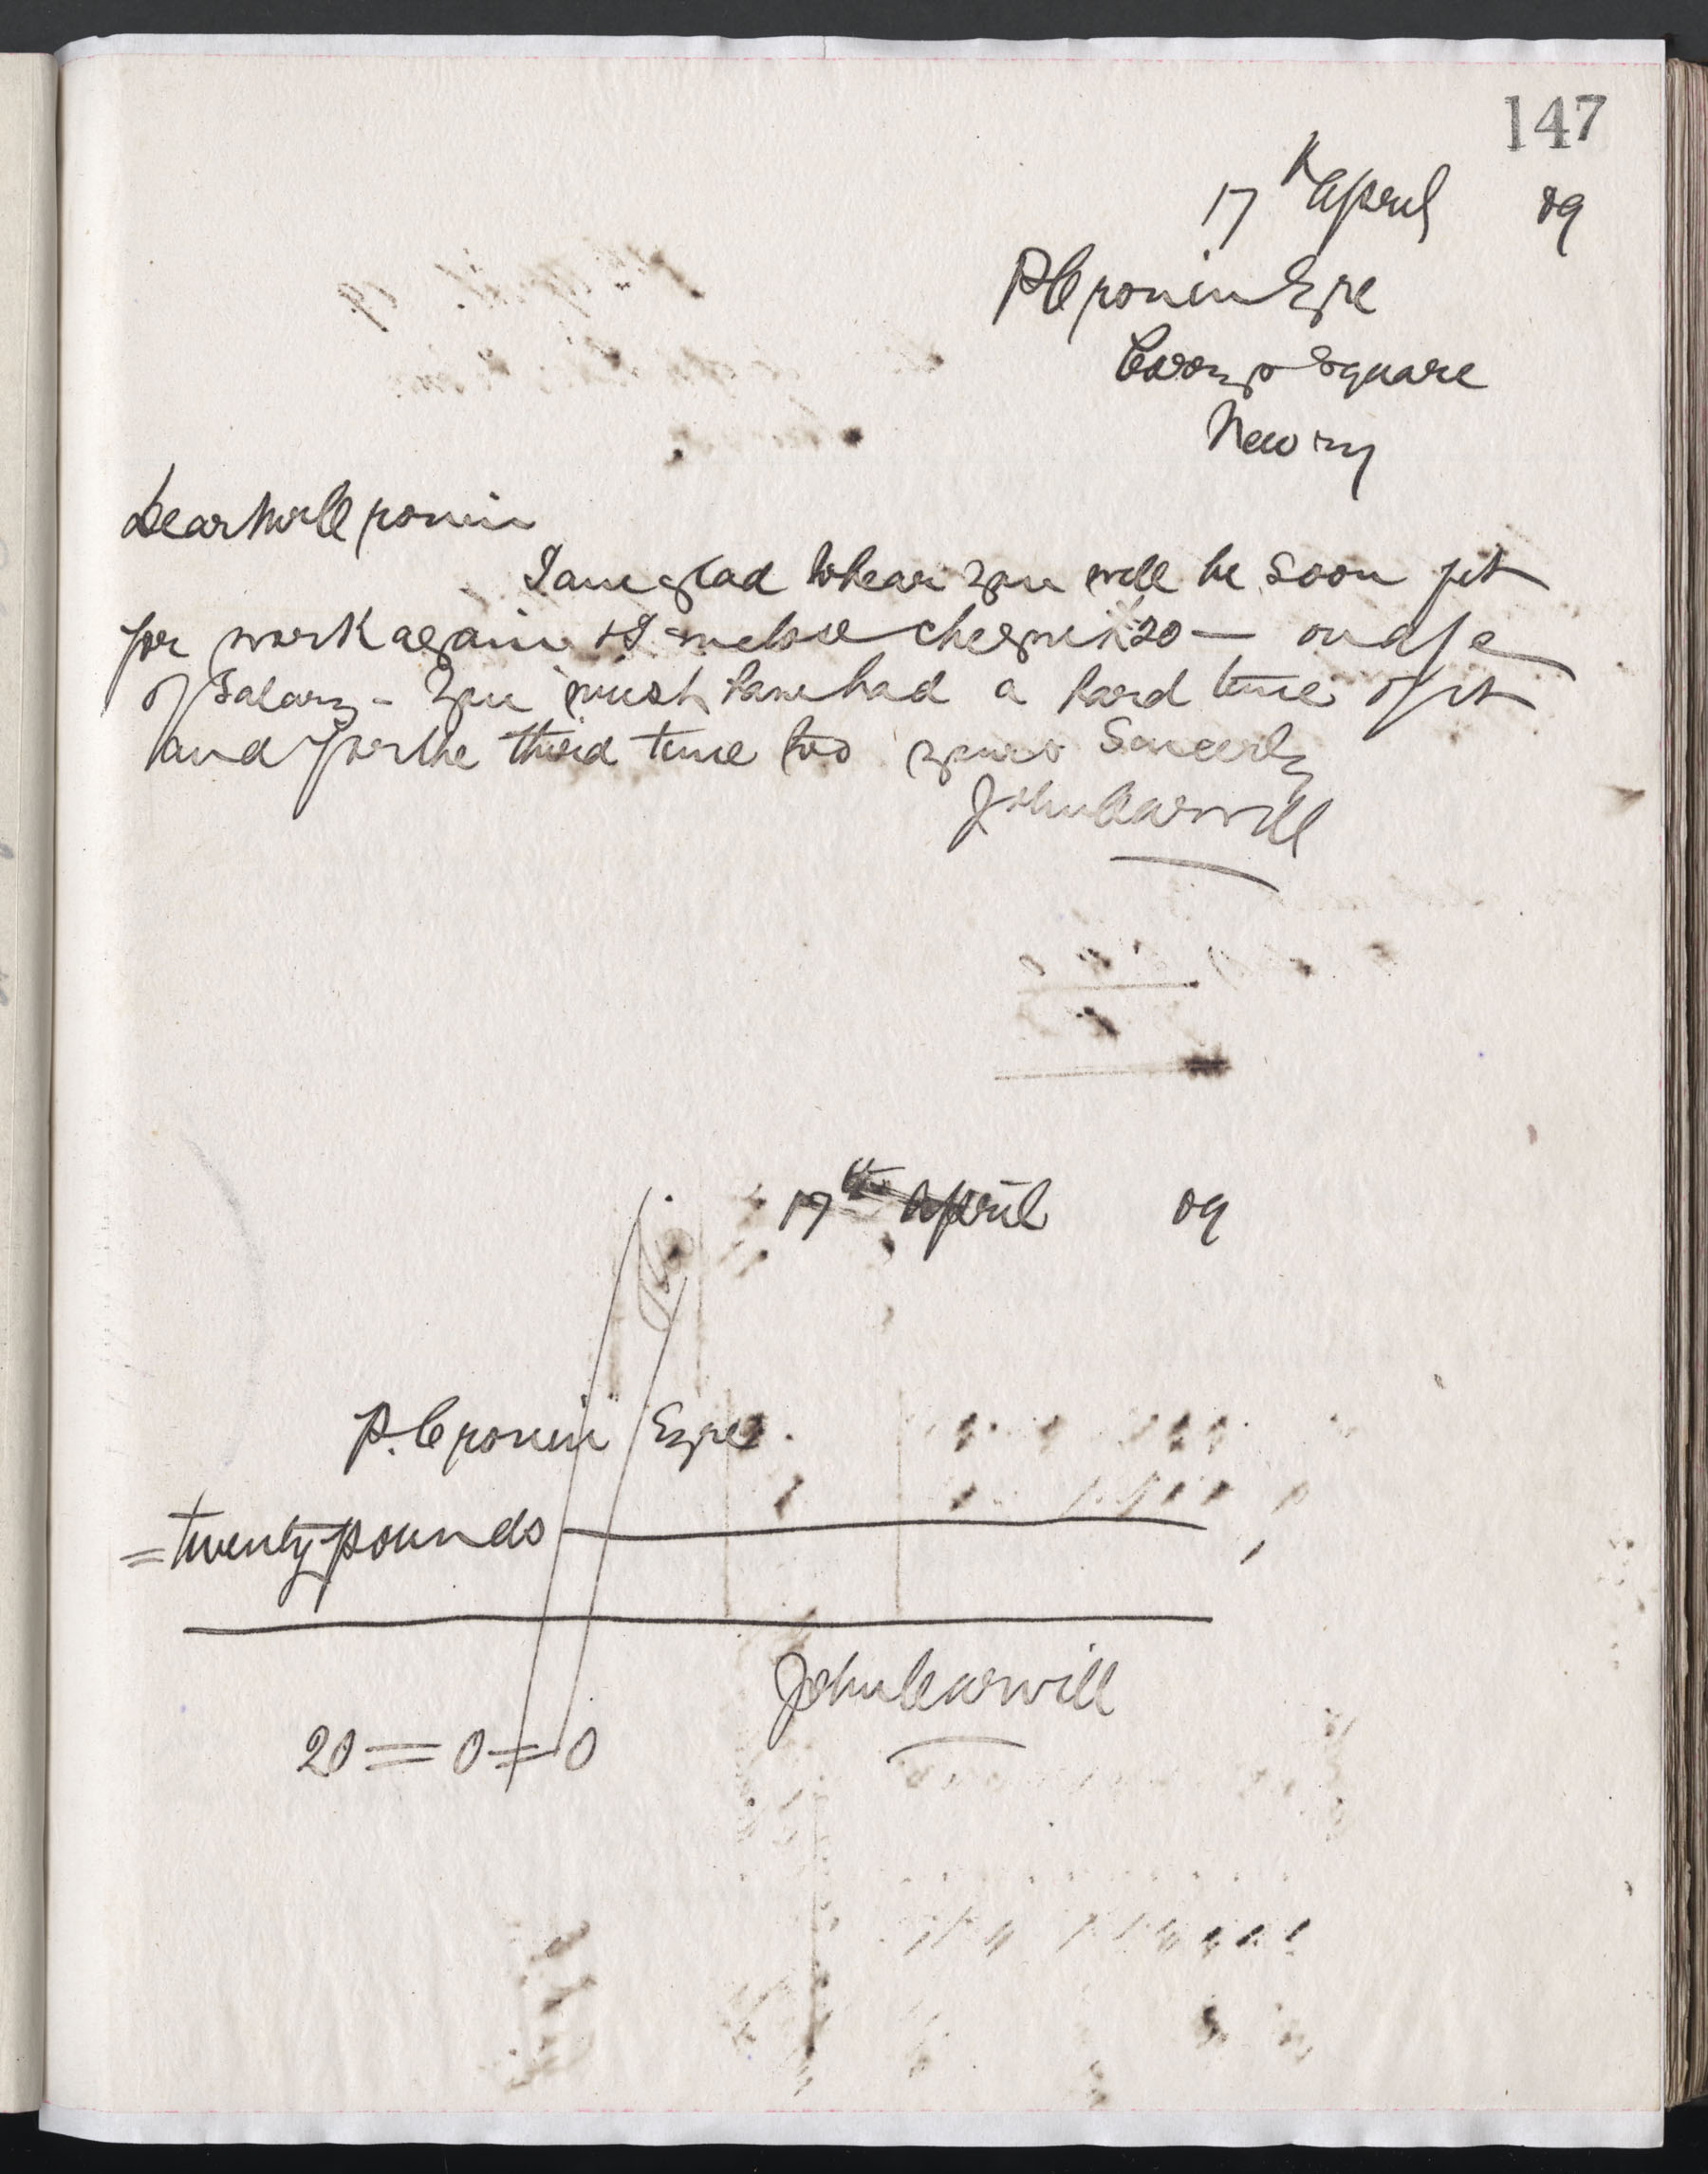 147
17th April 09
P Cronin Esqe
Corry's Square
Newry
Dear Mr Cronin
I am glad to hear you will be soon fit
for work again & I enclose cheque £20 — on a/c
of Salary - You must have had a hard time of it
and for the third time too yours Sincerely
John Carvill
17th April 09
P. Cronin Esqre.
= twenty pounds
John Carvill
20 = 0 = 0